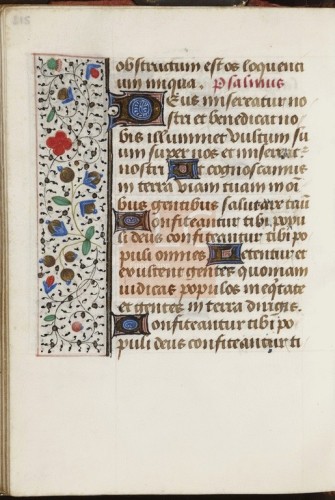 obstructum est os loquenti
um iniqua. Psalmus
Deus misereatur no
stri et benedicat no
bis illuminet vultum su
um super nos et misereat
nostri Ut cognoscamus
in terra viam tuam in oi
bus gentibus salutare tuū
Confiteantur tibi popu
li deus confiteantur tibi po
puli omnes Letentur et
exultent gentes quoniam
iudicas populos in eq̄tate
et gentes in terra dirigis.
Confiteantur tibi po
puli deus confiteantur ti